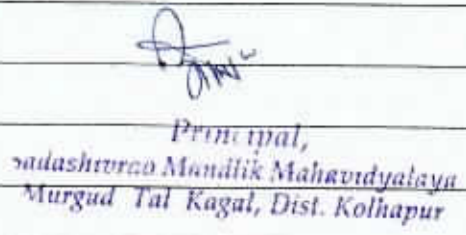 Principal,
Sadashivrao Mandlik Mahavidyalaya
Murgud Tal Kagal, Dist. Kolhapur